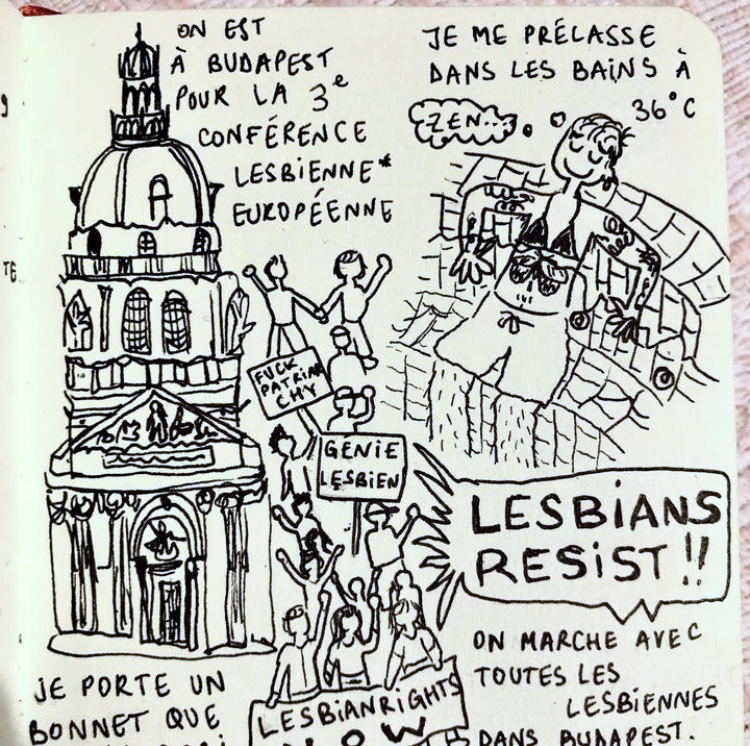 ON EST
À BUDAPEST
POUR LA 3e
CONFÉRENCE
LESBIENNE*
EUROPÉENNE
JE ME PRÉLASSE
DANS LES BAINS À
36°C
ZEN...
FUCK
PATRIAR
CHY
GÉNIE
LESBIEN
LESBIANS
RESIST !!
ON MARCHE AVEC
TOUTES LES
LESBIENNES
DANS BUDAPEST.
JE PORTE UN
BONNET QUE
LESBIANRIGHTS
NOW
TE